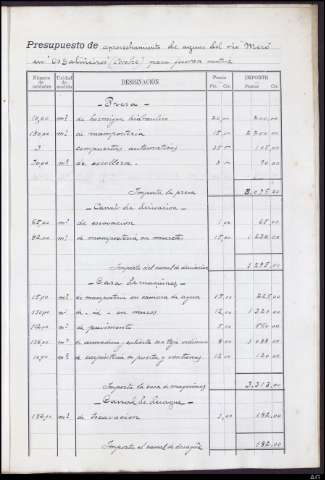 Presupuesto de aprovechamiento de aguas del río Meró
en Os Baliñeiros para fuerza motriz
Número de unidades Unidad de medida DESIGNACIÓN Precio Pts. Cts. IMPORTE Pesetas Cts.
Presa
10,00 m³ de hormigón hidráulico 20,00 200,00
de mampostería 15,00
3 compuertas automáticas 35,00 105,00
30,00 m³ de escollera 3,00 90,00
Importe la presa 3.095,00
Canal de derivación
65,00 m³ de excavación 1,00 65,00
82,00 m³ de mampostería en muros 15,00 1.230,00
Importe del canal de derivación 1.295,00
Casa de máquinas
15,00 m³ de mampostería en cámara de agua 15,00 225,00
110,00 m³ de id. en muros 12,00 1.320,00
de pavimento 5,00
136,00 m² de armadura y cubierta con teja ordinaria 8,00 1.088,00
10,00 m² de carpintería en puertas y ventanas 12,00 120,00
Importe la casa de máquinas 3.313,00
Canal de desagüe
192,00 m³ de excavación 1,00 192,00
Importe el canal de desagüe 192,00